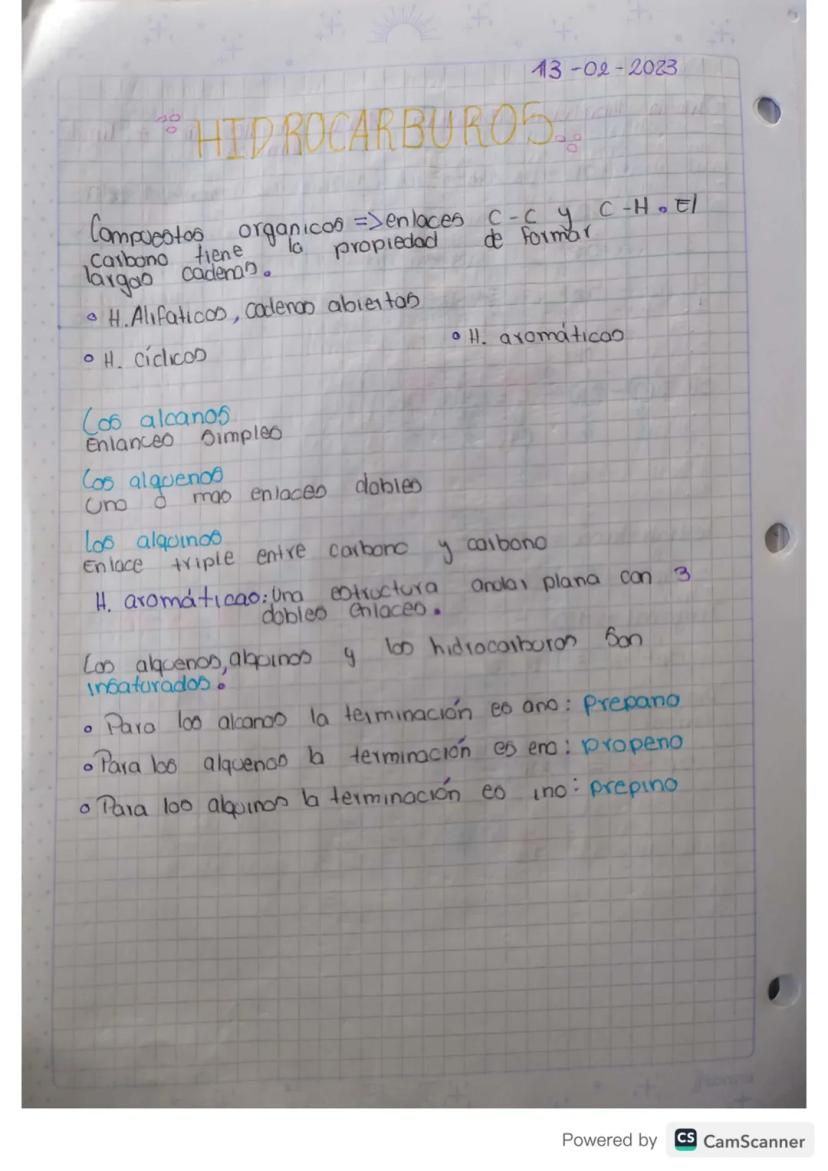 13-02-2023
HIDROCARBUROS
Compuestos organicos => enlaces C-C y C-H. El
carbono tiene la propiedad de formar
largas cadenas.
• H. Alifaticos, cadenas abiertas
• H. aromáticos
• H. cíclicos
Los alcanos
Enlances simples
Los alquenos
Uno ó mas enlaces dobles
Los alquinos
Enlace triple entre carbono y carbono
H. aromáticas: Una estructura anular plana con 3
dobles enlaces.
Los alquenos, alquinos y los hidrocarburos son
insaturados.
• Para los alcanos la terminación es ano: Prepano
• Para los alquenos la terminación es eno: propeno
• Para los alquinos la terminación es ino: prepino
Powered by CS CamScanner